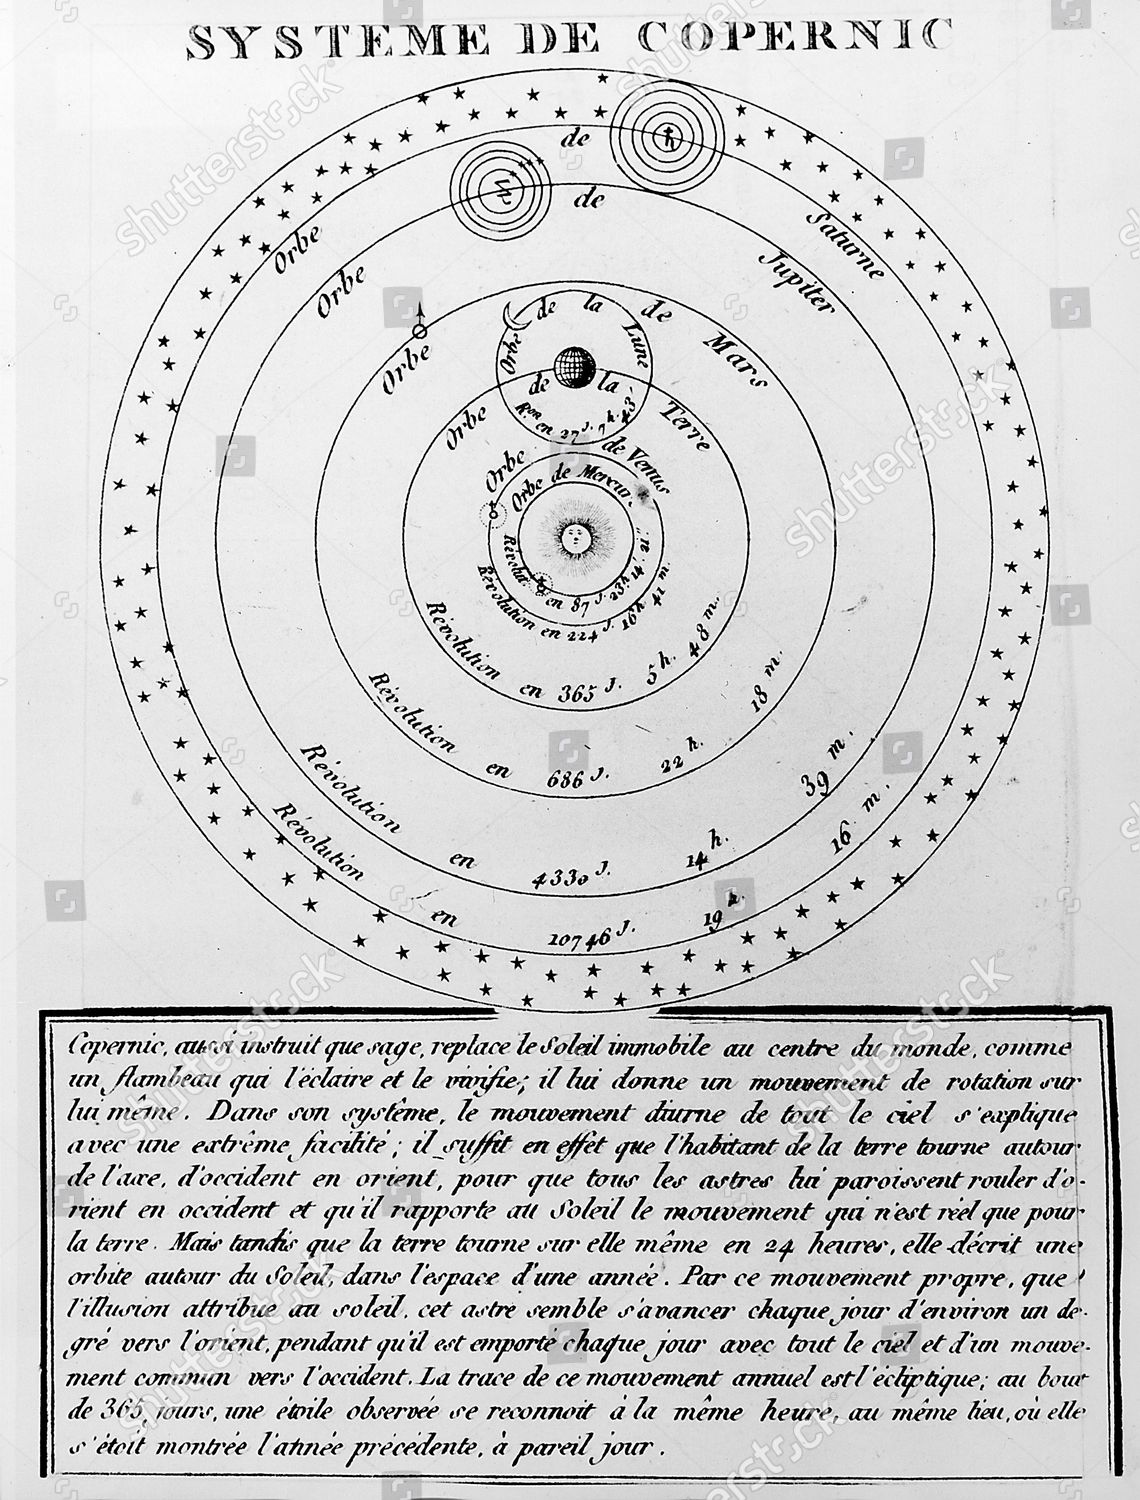 SYSTEME DE COPERNIC
Orbe de Saturne
Orbe de Jupiter
Orbe de Mars
Orbe de la Lune
Orbe de la Terre
R.on en 27 J. 7 h. 43'
Orbe de Venus
Orbe de Mercur
Révolut. en 87 J. 23 h. 14' 21"
Révolution en 224 J. 16 h. 41 m.
Révolution en 365 J. 5 h. 48 m.
Révolution en 686 J. 22 h. 18 m.
Révolution en 4330 J. 14 h. 39 m.
Révolution en 10746 J. 19 h. 16 m.
Copernic, aussi instruit que sage, replace le Soleil immobile au centre du monde, comme
un flambeau qui l'éclaire et le vivifie; il lui donne un mouvement de rotation sur
lui même. Dans son systême, le mouvement diurne de tout le ciel s'explique
avec une extrême facilité; il suffit en effet que l'habitant de la terre tourne autour
de l'axe, d'occident en orient, pour que tous les astres lui paroissent rouler d'o-
rient en occident et qu'il rapporte au Soleil le mouvement qui n'est réel que pour
la terre. Mais tandis que la terre tourne sur elle même en 24 heures, elle décrit une
orbite autour du Soleil, dans l'espace d'une année. Par ce mouvement propre, que
l'illusion attribue au soleil, cet astre semble s'avancer chaque jour d'environ un de-
gré vers l'orient, pendant qu'il est emporté chaque jour avec tout le ciel et d'un mouve-
ment commun vers l'occident. La trace de ce mouvement annuel est l'écliptique; au bout
de 365 jours, une étoile observée se reconnoit à la même heure, au même lieu, où elle
s'étoit montrée l'année précédente, à pareil jour.
shutterstock